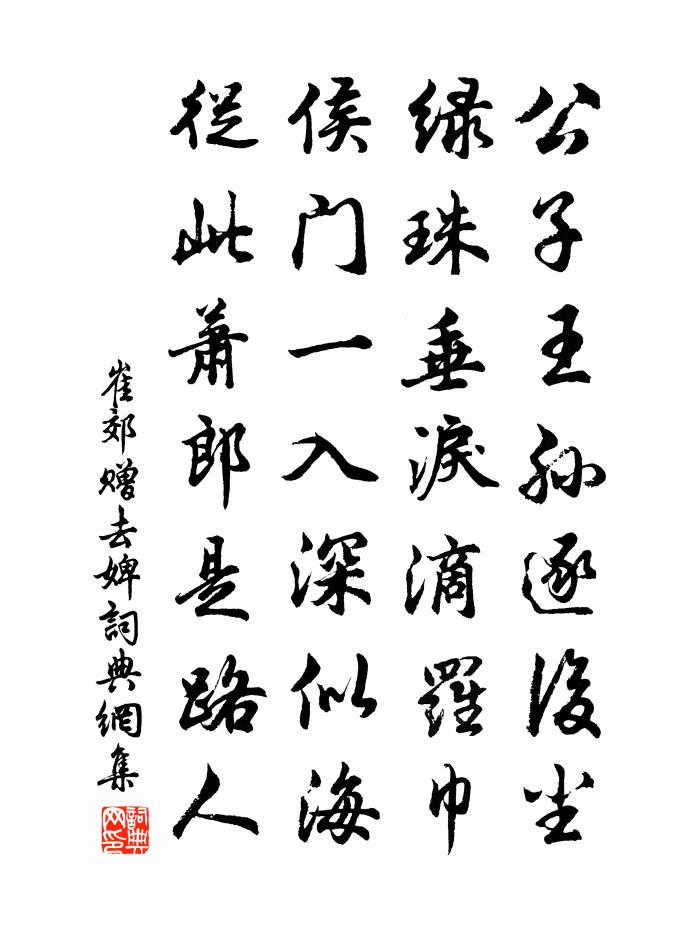 公子王孙逐後尘
绿珠垂淚滴羅巾
侯门一入深似海
從此蕭郎是路人
崔郊赠去婢詞典網集
詞典网印